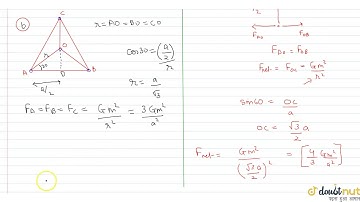 (b)
C
r = AO = BO = CO
O
r
30
A
D
B
a/2
cos30 = (a/2)/r
r = a/√3
F_A = F_B = F_C = Gm²/r² = 3Gm²/a²
2
F_OA F_OB
F_OA = F_OB
F_net = F_OC = Gm²/r²
sin60 = OC/a
OC = √3/2 a
F_net = Gm²/(√3a/2)² = [4/3 Gm²/a²]
doubtnut